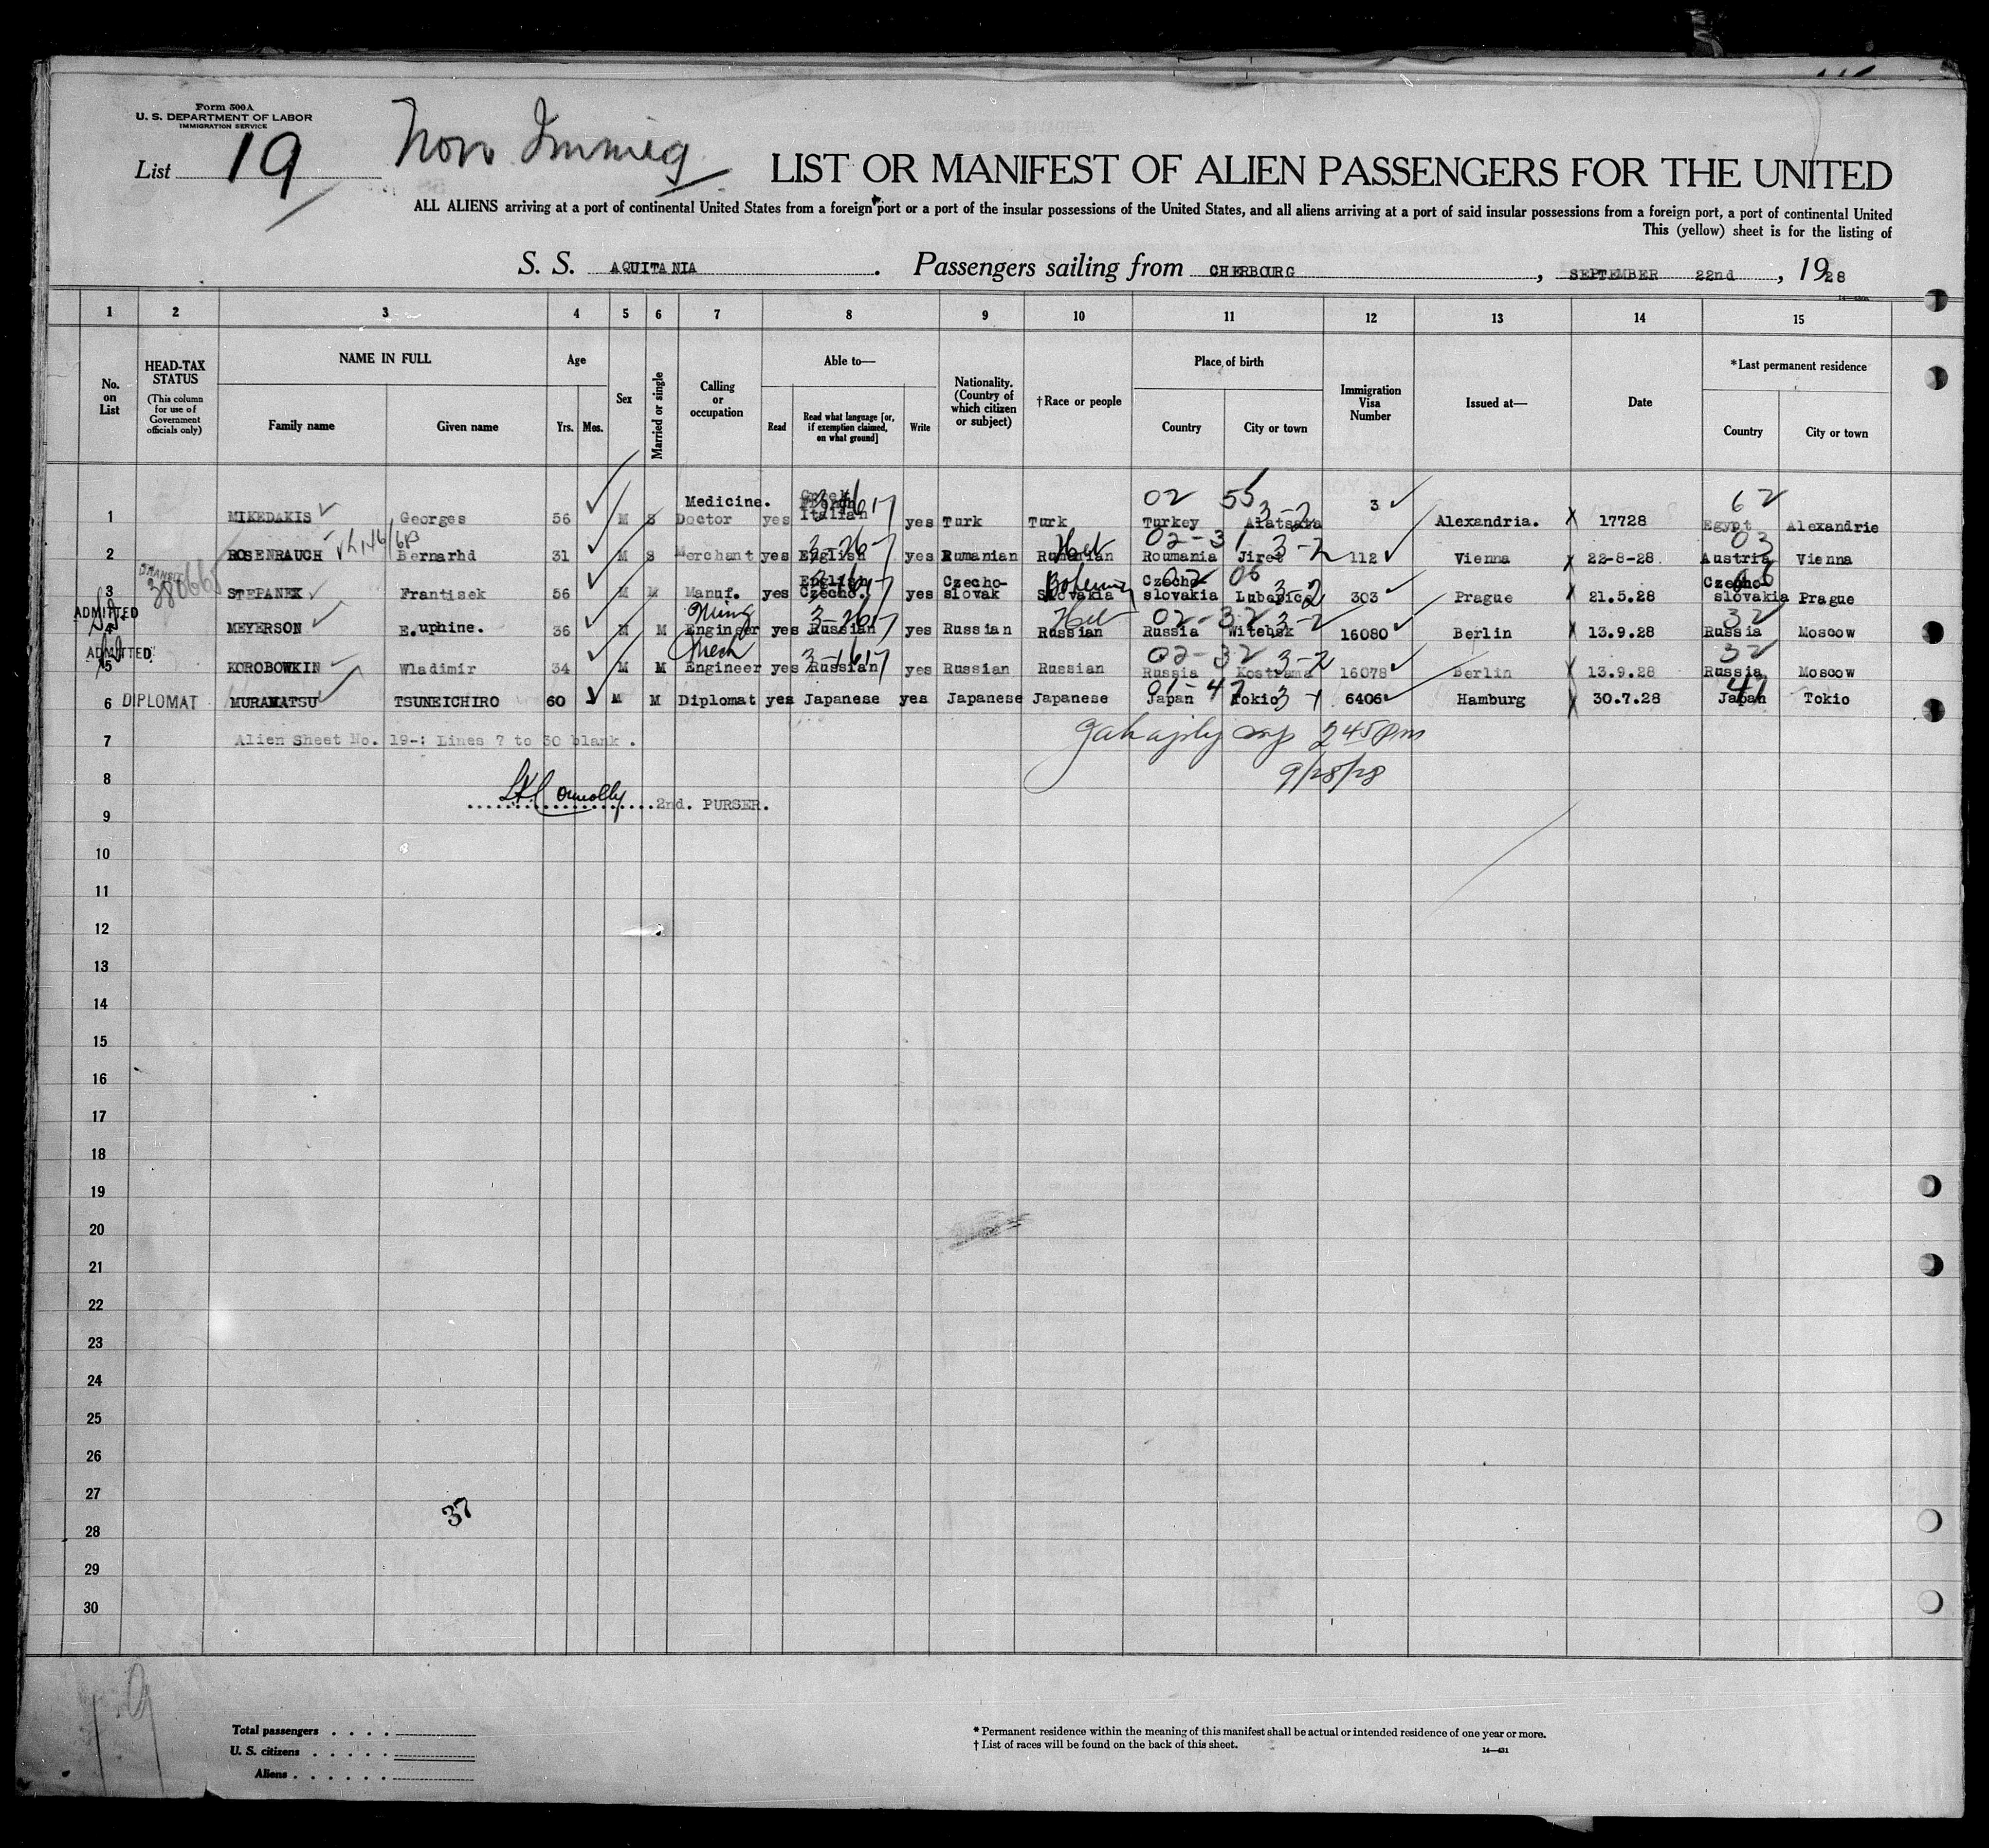 Form 500A
U. S. DEPARTMENT OF LABOR
IMMIGRATION SERVICE
List 19
Non Immig
LIST OR MANIFEST OF ALIEN PASSENGERS FOR THE UNITED
ALL ALIENS arriving at a port of continental United States from a foreign port or a port of the insular possessions of the United States, and all aliens arriving at a port of said insular possessions from a foreign port, a port of continental United
This (yellow) sheet is for the listing of
S. S. AQUITANIA . Passengers sailing from CHERBOURG , SEPTEMBER 22nd , 1928
1 2 3 4 5 6 7 8 9 10 11 12 13 14 15
No. on List
HEAD-TAX STATUS (This column for use of Government officials only)
NAME IN FULL
Family name Given name
Age
Yrs. Mos.
Sex
Married or single
Calling or occupation
Able to—
Read Read what language [or, if exemption claimed, on what ground] Write
Nationality. (Country of which citizen or subject)
†Race or people
Place of birth
Country City or town
Immigration Visa Number
Issued at—
Date
*Last permanent residence
Country City or town
1 MIKEDAKIS Georges 56 M S Medicine. Doctor yes Italian yes Turk Turk 02 55 Turkey Alatsata 3-2 3 Alexandria. 17728 62 Egypt Alexandrie
2 ROSENRAUCH Bernarhd 31 M S Merchant yes English yes Rumanian Rumanian Heb 02-31 Roumania 3-2 112 Vienna 22-8-28 03 Austria Vienna
TRANSIT
3 STEPANEK Frantisek 56 M M Manuf. yes English Czecho. yes Czecho-slovak Slovakia Bohemia Czecho-slovakia 3-2 303 Prague 21.5.28 Czecho-slovakia Prague
ADMITTED
4 MEYERSON E.uphine. 36 M M Engineer Ming yes Russian yes Russian Russian Heb 02-32 Russia Witebsk 3-2 16080 Berlin 13.9.28 32 Russia Moscow
ADMITTED
5 KOROBOWKIN Wladimir 34 M M Engineer Mech yes Russian yes Russian Russian 02-32 Russia Kostrama 3-2 16078 Berlin 13.9.28 32 Russia Moscow
6 DIPLOMAT MURAMATSU TSUNEICHIRO 60 M M Diplomat yes Japanese yes Japanese Japanese 01-47 Japan Tokio 3-1 6406 Hamburg 30.7.28 47 Japan Tokio
7 Alien Sheet No. 19-: Lines 7 to 30 blank.
2 45 Pm
8
9/28/28
2nd. PURSER.
9
10
11
12
13
14
15
16
17
18
19
20
21
22
23
24
25
26
27
37
28
29
30
Total passengers
U. S. citizens
Aliens
* Permanent residence within the meaning of this manifest shall be actual or intended residence of one year or more.
† List of races will be found on the back of this sheet.
14—431